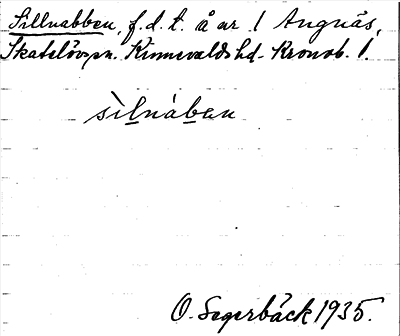 Sillnabben, f.d.t. å ar. 1 Angnäs,
Skatelövs sn. Kinnevalds hd. Kronob. l.
sìlnában
O. Segerbäck 1935.